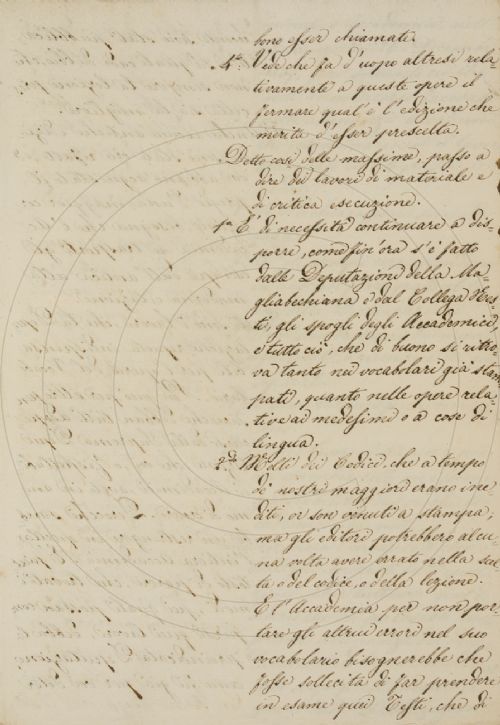 bono esser chiamate.
4.° Vede che fa d'uopo altresì rela
tivamente a queste opere il
fermare qual'è l'edizione che
merita d'esser prescelta.
Detto così delle massime, passo a
dire dei lavori di materiale e
di critica esecuzione.
1.° È di necessità continuare a dis-
porre, come fin'ora s'è fatto
dalla Deputazione della Ma-
gliabechiana e dal Collega
gli spogli degli Accademici,
e tutto ciò, che di buono si ritro,
va tanto nei vocabolari già stam
pati, quanto nelle opere rela-
tive ai medesimi o a cose di
lingua.
2.° Molti dei Codici che a tempo
di nostri maggiori erano ine
diti, or son venuti a stampa;
ma gli editori potrebbero alcu
na volta avere errato nella scel
ta o del codice, o della lezione.
E l'Accademia per non por-
tare gli altrui errori nel suo
vocabolario bisognerebbe che
fosse sollecita di far prendere
in esame quei Testi, che di